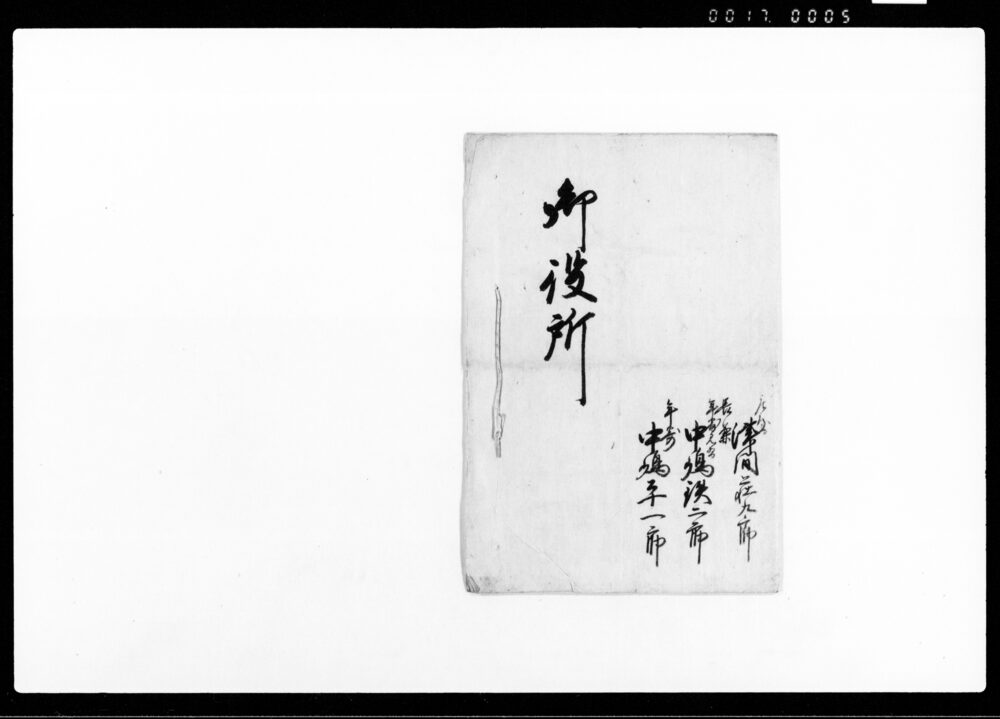 0017 0005
津間荘九郎
中嶋鉄二郎
年寄
中嶋平一郎
御役所